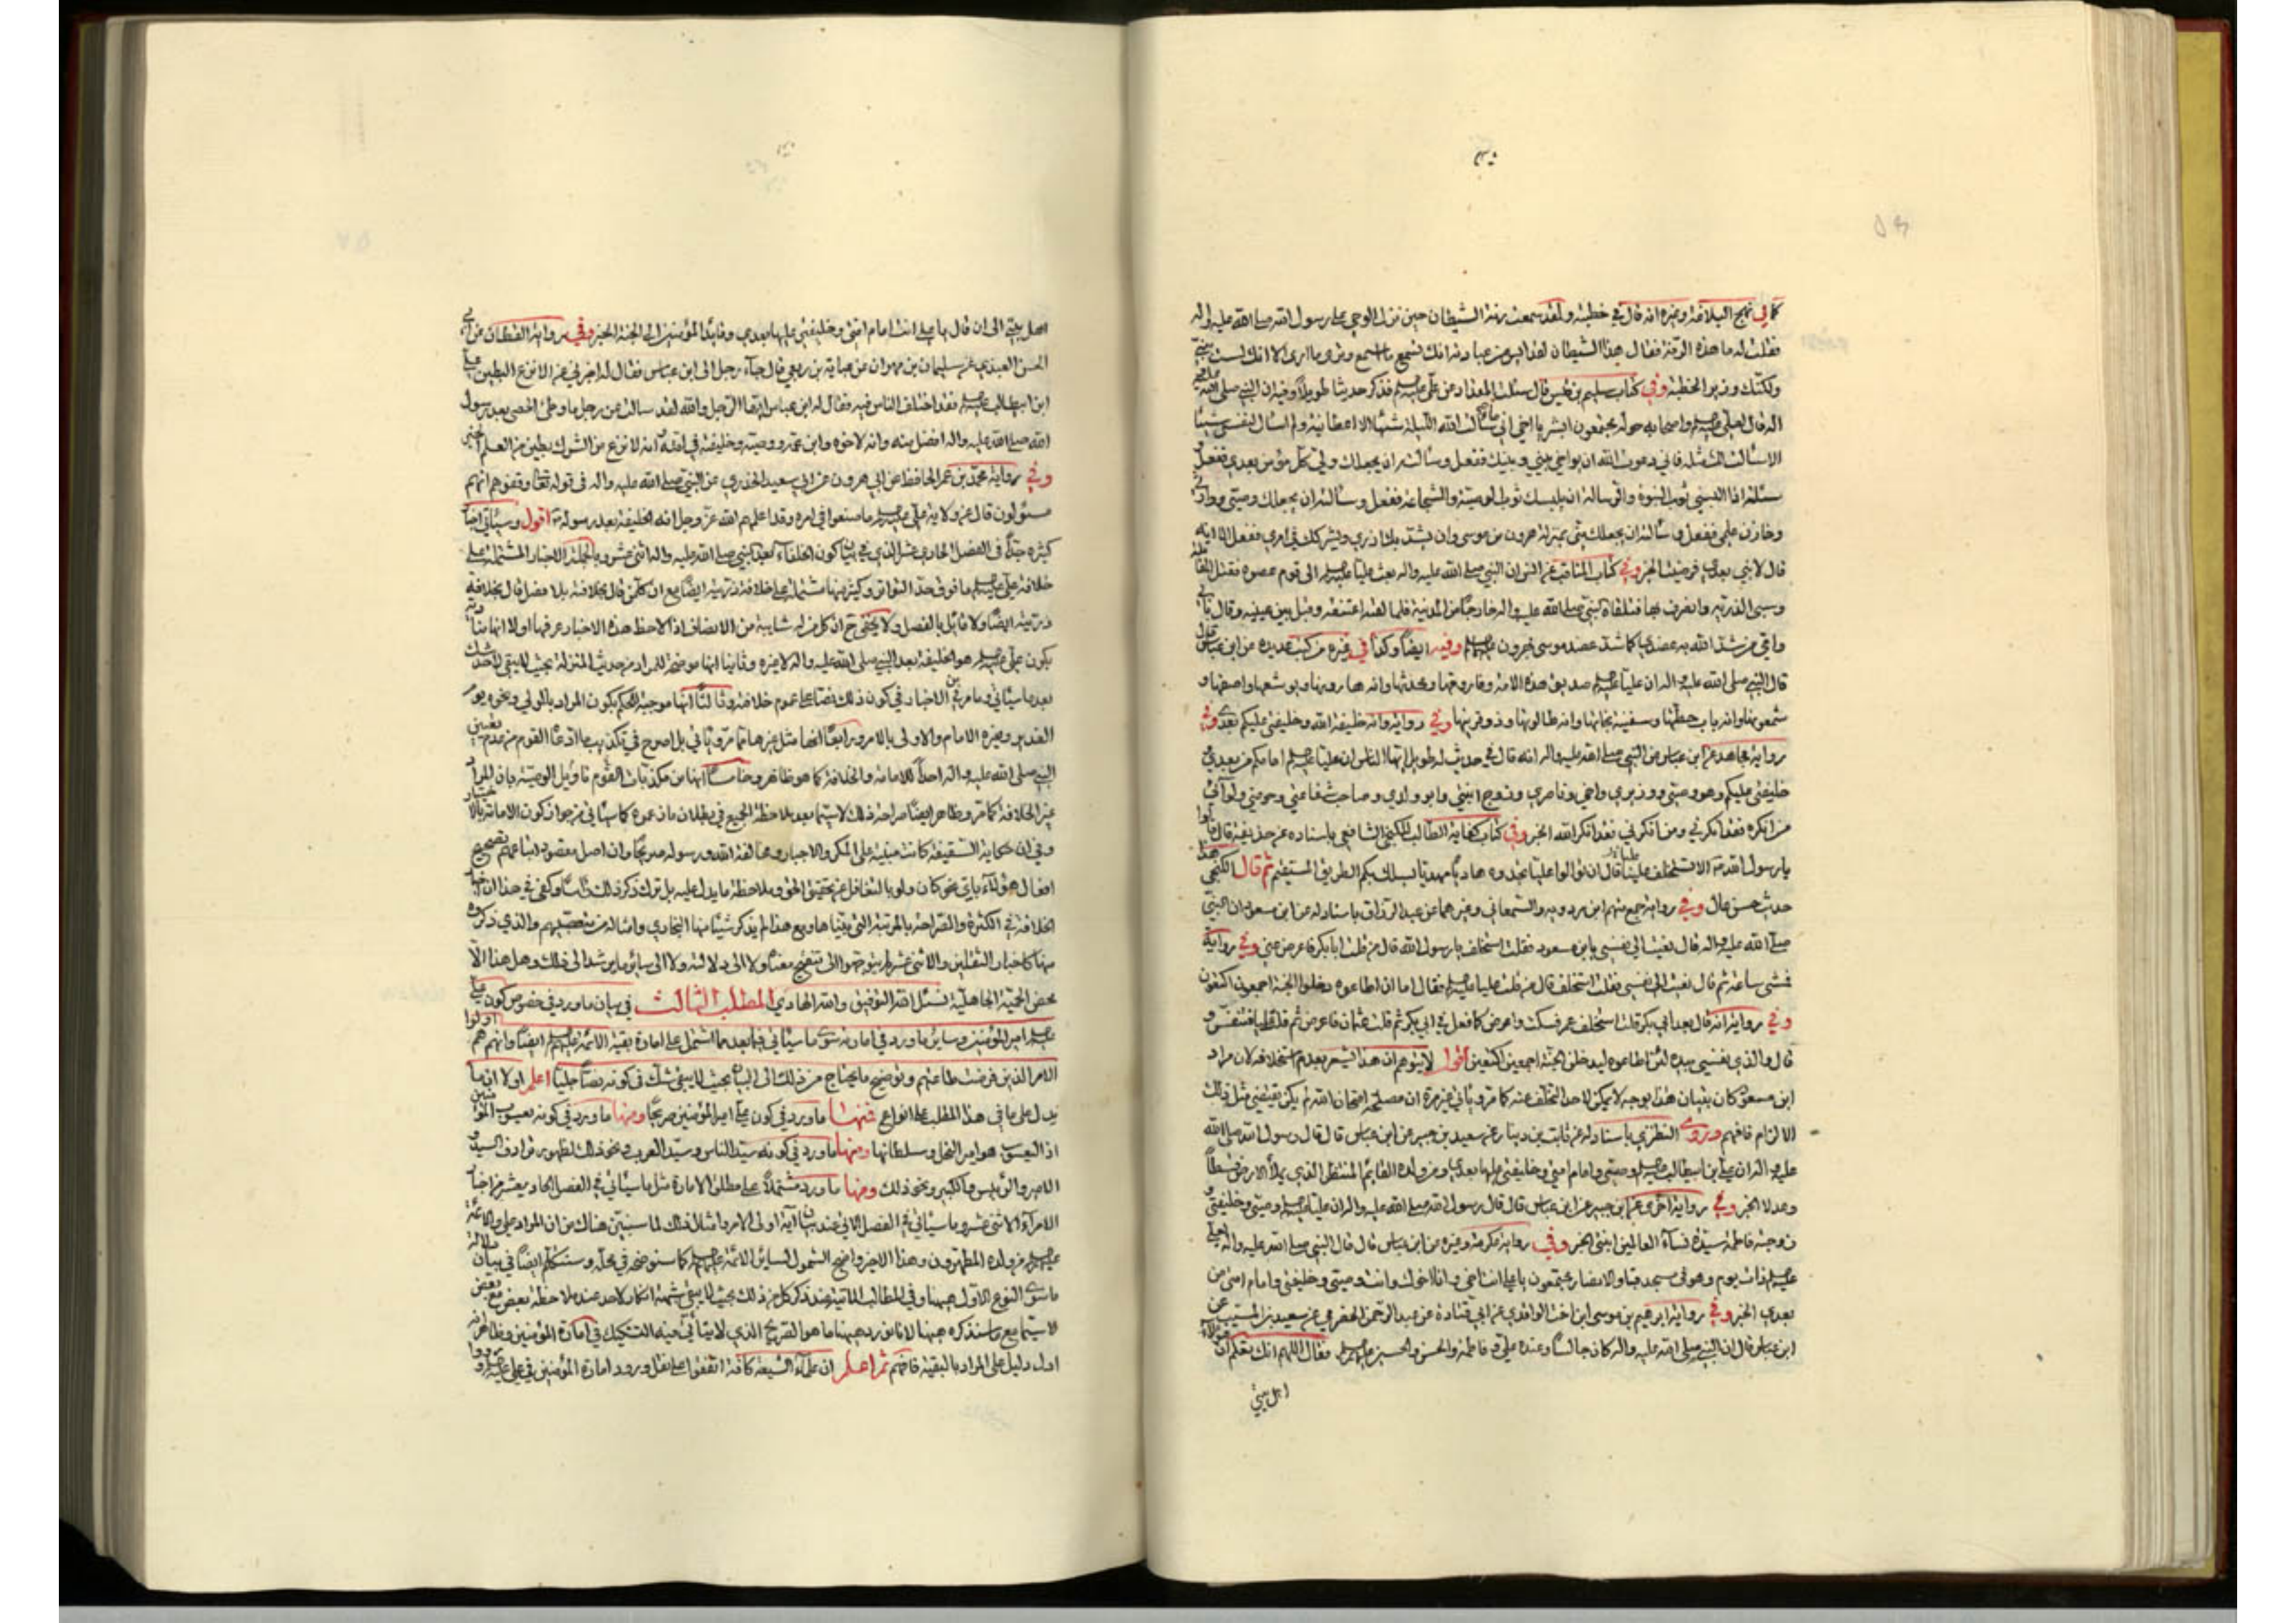 كما في نهج البلاغة وغيره انه قال في خطبته ولقد سمعت رنة الشيطان حين نزل الوحي على رسول الله صلى الله عليه واله
فقلت له ما هذه الرنة فقال هذا الشيطان لقد ايس من عبادته انك تسمع ما اسمع وترى ما ارى الا انك لست بنبي
ولكنك وزير الخطبة وفي كتاب سليم بن قيس قال سئلت المقداد عن علي فذكر حديثا طويلا وفيه ان النبي صلى الله عليه
اله قال لعلي واصحابه حوله يجتمعون ابشر يا اخي اني سألت الله الليلة شيئا الا اعطانيه ولم اسال لنفسي شيئا
الا سألت لك مثله فاني دعوت الله ان يواخي بيني وبينك ففعل وسألته ان يجعلك ولي كل مؤمن بعدي ففعل
سئلته اذا البسني ثوب النبوة والرسالة ان يلبسك ثوب الوصية والشجاعة ففعل وسألته ان يجعلك وصيي ووارثي
وخازن علمي ففعل وسألته ان يجعلك مني بمنزلة هرون من موسى وان يشد بك ازري ويشركك في امري ففعل الا انه
قال لا نبي بعدي فرضيت الخبر وفي كتاب المناقب عن ان النبي صلى الله عليه واله بعث عليا الى قوم عصوه فقتل المقاتلة
وسبى الذرية وانصرف بها فتلقاه النبي صلى الله عليه واله خارجا من المدينة فلما لقيه اعتنقه وقبل بين عينيه وقال بابي
وامي من شد الله به عضدي كما شد عضد موسى بهرون وفيه ايضا وكذا في غيره من كتب عديدة عن ابن عباس قال
قال النبي صلى الله عليه واله ان عليا صديق هذه الامة وفاروقها ومحدثها وانه هارونها ويوشعها واصفها و
شمعونها وانه باب حطتها وسفينة نجاتها وانه طالوتها وذو قرنيها وفي رواية وانه خليفة الله وخليفتي عليكم بعدي وفي
رواية مجاهد عن ابن عباس عن النبي صلى الله عليه واله انه قال في حديث له طويل ايها الناس ان عليا امامكم من بعدي و
خليفتي عليكم وهو وصيي ووزيري واخي وناصري وزوج ابنتي وابو ولدي وصاحب شفاعتي وحوضي ولوائي
من انكره فقد انكرني ومن انكرني فقد انكر الله الخبر وفي كتاب كفاية الطالب للكنجي الشافعي باسناده عن حذيفة قال قالوا
يا رسول الله الا تستخلف علينا قال ان تولوا عليا تجدوه هاديا مهديا يسلك بكم الطريق المستقيم ثم قال الكنجي هذا
حديث حسن عال وفي رواية جمع منهم ابن مردويه والسمعاني وغيرهما عن عبد الرزاق باسناد له عن ابن مسعود ان النبي
صلى الله عليه واله قال نعيت الى نفسي يا ابن مسعود فقلت استخلف يا رسول الله قال من قلت ابا بكر فاعرض عني وفي رواية
فمشى ساعة ثم قال نعيت الى نفسي فقلت استخلف قال من قلت عليا فقال اما ان اطاعوه دخلوا الجنة اجمعون اكتعون
وفي رواية انه قال بعد ابي بكر قلت استخلف عمر فسكت واعرض كما فعل في ابي بكر ثم قلت عثمان فاعرض ثم قلت عليا فتنفس و
قال والذي نفسي بيده لئن اطاعوه ليدخلن الجنة اجمعين اكتعين اقول لا يتوهم ان هذا يشعر بعدم استخلافه لان مراد
ابن مسعود كان بتبيان هذا بوجه لا يمكن لاحد التخلف عنه كما مر وياتي غير مرة ان مصلحة امتحان الله لم يكن يقتضي مثل ذلك
الالزام فافهم وروى النطنزي باسناد له عن ثابت بن دينار عن سعيد بن جبير عن ابن عباس قال قال رسول الله صلى الله
عليه واله ان علي بن ابيطالب وصيي وامام امتي وخليفتي عليها بعدي ومن ولده القائم المنتظر الذي يملأ الارض قسطا
وعدلا الخبر وفي رواية اخرى عن ابن جبير عن ابن عباس قال قال رسول الله صلى الله عليه واله ان عليا وصيي وخليفتي و
زوجته فاطمة سيدة نساء العالمين ابنتي الخبر وفي رواية عكرمة وغيره عن ابن عباس قال قال النبي صلى الله عليه واله لعلي
ذات يوم وهو في مسجد قبا والانصار مجتمعون يا علي انت اخي وانا اخوك وانت وصيي وخليفتي وامام امتي من
بعدي الخبر وفي رواية ابرهيم بن موسى ابن اخت الواقدي عن ابي قتادة عن عبد الرحمن الحضرمي عن سعيد بن المسيب عن
ابن عباس قال ان النبي صلى الله عليه واله كان جالسا وعنده علي وفاطمة والحسن والحسين فقال اللهم انك تعلم ان هؤلاء
اهل بيتي
اهل بيتي الى ان قال يا علي انت امام امتي وخليفتي عليها بعدي وقائد المؤمنين الى الجنة الخبر وفي رواية القطان عن
الحسن العبدي عن سليمان بن مهران عن عباية بن ربعي قال جاء رجل الى ابن عباس فقال له اخبرني عن الانزع البطين علي
ابن ابيطالب فقد اختلف الناس فيه فقال له ابن عباس ايها الرجل والله لقد سالت عن رجل ما وطئ الحصى بعد رسول
الله صلى الله عليه واله افضل منه وانه لاخوه وابن عمه ووصيه وخليفته في امته وانه لانزع من الشرك بطين من العلم
وفي رواية محمد بن عمر الحافظ عن ابي هرون عن ابي سعيد الخدري عن النبي صلى الله عليه واله في قوله تعالى وقفوهم انهم
مسئولون قال عن ولاية علي ما صنعوا في امره وقد اعلمهم الله عز وجل انه الخليفة بعد رسوله اقول وسياتي اخبار
كثيرة جدا في الفصل الحادي عشر الذي في بيان كون الخلفاء بعد النبي صلى الله عليه واله اثني عشر وبالجملة الاخبار المشتملة على
خلافة علي ما فوق حد التواتر وكثير منها مشتملة على خلافة ذريته ايضا مع ان كل من قال بخلافته بلا فصل قال بخلافة
ذريته ايضا ولا قائل بالفصل ولا يخفى ان كل من له شايبة من الانصاف اذا لاحظ هذه الاخبار عرف اولا انها
بكون علي هو الخليفة بعد النبي صلى الله عليه واله لا غيره وثانيا انها موضحة للمراد من حديث المنزلة بحيث لا يبقى لاحد شك
بعد ما سياتي وما مر من الاخبار في كون ذلك نصا على عموم خلافته وثالثا انها موجبة للحكم بكون المراد بالولي ونحوه يوم
الغدير وغيره الامام والاولى بالامر ورابعا انها مثل غيرها مما مر وياتي بل اصرح في تكذيب ما ادعاه القوم من عدم تعيين
النبي صلى الله عليه واله احدا للامامة والخلافة كما هو ظاهر وخامسا انها من مكذبات القوم تاويل الوصية بان المراد
غير الخلافة كما مر وظاهر ايضا صراحة ذلك لا سيما بعد ملاحظة الجميع في بطلان ما زعموه كما سياتي من جواز كون الامامة بالاختيار
وفي ان حكاية السقيفة كانت مبنية على المكر والاجبار ومخالفة الله ورسوله صريحا وان اصل مقصود اتباعهم تصحيح
افعال هؤلاء باي نحو كان ولو بالتغافل عن تحقيق الحق وملاحظة ما يدل عليه بل ترك ذكر ذلك وكفى في هذا ان
الخلافة في الكثرة والصراحة بالمرتبة التي بيناها ومع هذا لم يذكر شيئا منها البخاري وامثاله من متعصبيهم والذي ذكروه
منها كاخبار الثقلين والاثني عشر لم يتوجهوا الى تنقيح معناه ولا الى دلالته ولا الى سائر ما يرشد الى ذلك وهل هذا الا
محض الحمية الجاهلية نسئل الله التوفيق والله الهادي المطلب الثالث في بيان ما ورد في خصوص كون علي
امير المؤمنين وسائر ما ورد في امارته سوى ما سياتي فيما بعد مما اشتمل على امارة بقية الائمة ايضا وانهم هم اولوا
الامر الذين فرضت طاعتهم وتوضيح ما يحتاج من ذلك الى البيان بحيث لا يبقى شك في كونه نصا جليا اعلم اولا ان ما
يدل على ما في هذا المطلب على انواع فمنها ما ورد في كون علي امير المؤمنين صريحا ومنها ما ورد في كونه يعسوب المؤمنين
اذ اليعسوب هو امير النحل وسلطانها ومنها ما ورد في كونه سيد الناس وسيد العرب ونحو ذلك لظهور ترادف السيد و
الامير والرئيس والكبير ونحو ذلك ومنها ما ورد مشتملا على مطلق الامارة مثل ما سياتي في الفصل الحادي عشر من اخبار
الامراء الاثني عشر وما سياتي في الفصل الثاني عند بيان اية اولي الامر وامثال ذلك لما سنبين هناك من ان المراد علي والائمة
من ولده المطهرون وهذا الاخير واضح الشمول لسائر الائمة كما سنوضحه في محله وسنتكلم ايضا في بيان دلالة
ما سوى النوع الاول ههنا وفي المطالب الاتية عند ذكر كل من ذلك بحيث لا يبقى شبهة انكار لاحد عند ملاحظة بعض مع بعض
لا سيما مع ما سنذكره ههنا لانا نورد ههنا ما هو الصريح الذي لا يتأتى فيه التشكيك في امارة المؤمنين وظاهر انه
ادل دليل على المراد بالبقية فافهم ثم اعلم ان علماء الشيعة كافة اتفقوا على نقل ورود امارة المؤمنين في علي